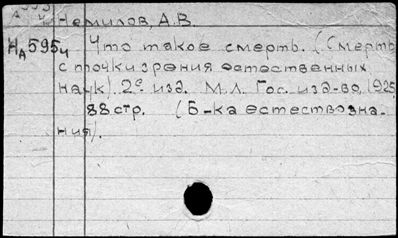 Немилов, А.В.
НА595ч Что такое смерть. (Смерть
с точки зрения естественных
наук). 2е изд. М.Л. Гос. изд-во, 1925,
88 стр. (Б-ка естествозна-
ния).